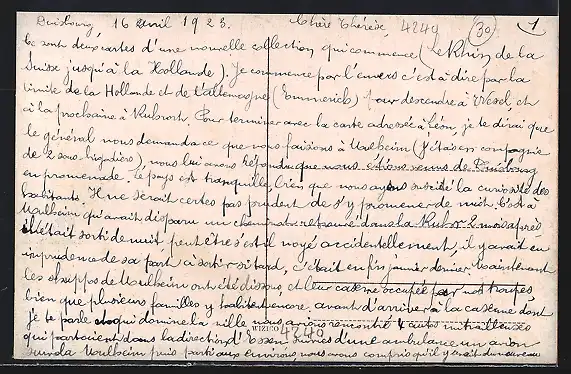 Duisbourg 16 avril 1923. Chère Thérèse, 4249 30 1
Ce sont deux cartes d'une nouvelle collection qui commence (le Rhin de la
Suisse jusqu'à la Hollande). Je commence par l'envers c'est à dire par la
limite de la Hollande et de l'allemagne (Emmerich) pour descendre à Wesel, et
à la prochaine à Ruhrort. Pour terminer avec la carte adressée à Léon, je te dirai que
le général nous demanda ce que nous faisions à Mulheim (J'étais en compagnie
de 2 sous brigadiers), nous lui avons répondu que nous étions venus de Duisbourg
en promenade. Le pays est tranquille, bien que nous ayons suscité la curiosité des
habitants. Il ne serait certes pas prudent de s'y promener de nuit. C'est à
Mulheim qu'avait disparu un cheminot retrouvé dans la Ruhr 2 mois après
il était sorti de nuit, peut être s'est il noyé accidentellement, il y avait eu
imprudence de sa part à sortir si tard, c'était en fin janvier dernier. Maintenant
les schuppos de Mulheim ont été dissous et leur caserne occupée par nos troupes
bien que plusieurs familles y habitent encore. avant d'arriver à la caserne dont
je te parle et qui domine la ville nous avions rencontré 4 autos mitrailleuses
WIZICO 4249
qui partaient dans la direction d'Essen suivies d'une ambulance un avion
survola Mulheim puis partit aux environs, nous avons compris qu'il y avait du nouveau